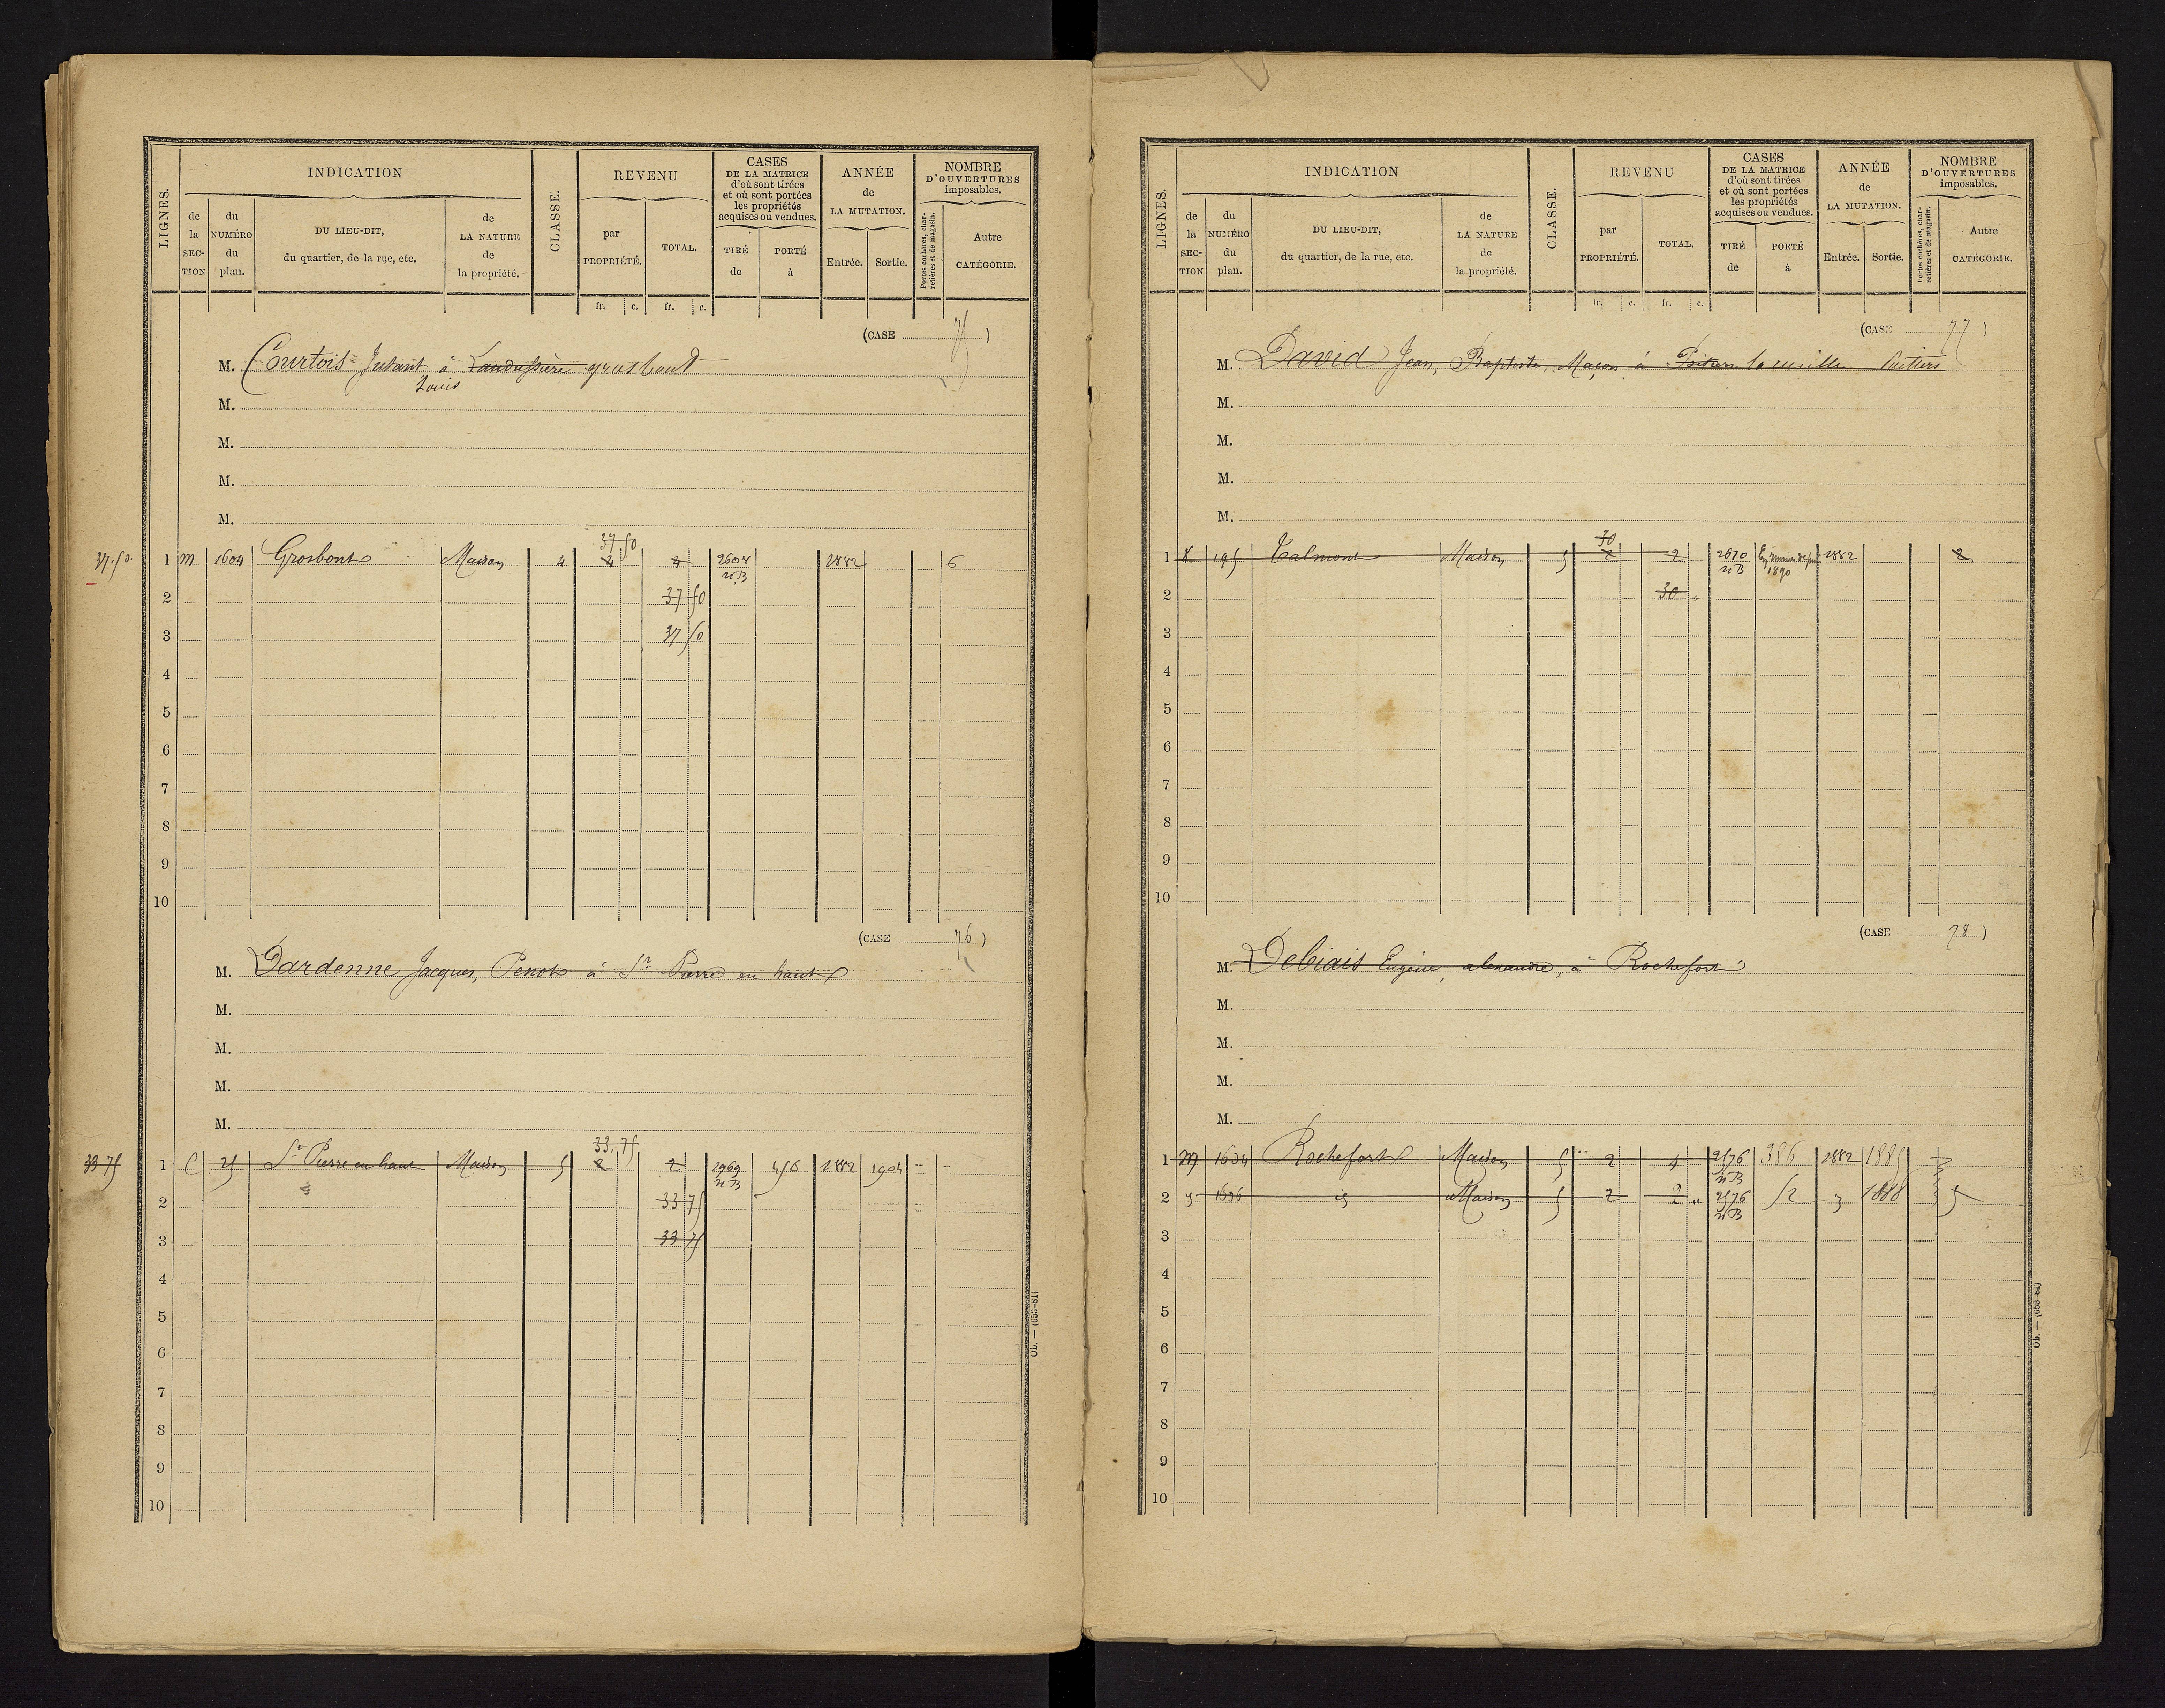 LIGNES.
INDICATION
CLASSE.
REVENU
CASES
DE LA MATRICE
d'où sont tirées
et où sont portées
les propriétés
acquises ou vendues.
ANNÉE
de
LA MUTATION.
NOMBRE
D'OUVERTURES
imposables.
de la SECTION
du NUMÉRO du plan.
DU LIEU-DIT,
du quartier, de la rue, etc.
de LA NATURE de la propriété.
par PROPRIÉTÉ.
TOTAL.
TIRÉ de
PORTÉ à
Entrée.
Sortie.
Portes cochères, charretières et de magasin.
Autre CATÉGORIE.
fr. c. fr. c.
(CASE 75)
M. Courtois à grosbout
Louis
M.
M.
M.
M.
37 50
37.50 1 M 1604 Grosbout Maison 4 4 4 2604 1882 6
nB
2 37 50
3 37 50
4
5
6
7
8
9
10
(CASE 76)
M. Dardenne Jacques, Penot à St Pierre en haut
M.
M.
M.
M.
33.75
33 75 1 C 25 St Pierre en haut Maison 5 2 2 1969 456 1882 1904
nB
2 33 75
3 33 75
4
5
6
7
8
9
10
Ob. — (653-81)
LIGNES.
INDICATION
CLASSE.
REVENU
CASES
DE LA MATRICE
d'où sont tirées
et où sont portées
les propriétés
acquises ou vendues.
ANNÉE
de
LA MUTATION.
NOMBRE
D'OUVERTURES
imposables.
de la SECTION
du NUMÉRO du plan.
DU LIEU-DIT,
du quartier, de la rue, etc.
de LA NATURE de la propriété.
par PROPRIÉTÉ.
TOTAL.
TIRÉ de
PORTÉ à
Entrée.
Sortie.
Portes cochères, charretières et de magasin.
Autre CATÉGORIE.
fr. c. fr. c.
(CASE 77)
M. David Jean, Baptiste, Maçon à Poitiers
M.
M.
M.
M.
30
1 K 195 Talmont Maison 5 2 2 2610 1882 2
nB 1890
2 30
3
4
5
6
7
8
9
10
(CASE 78)
M. Debiais Eugène, alexandre, à Rochefort
M.
M.
M.
M.
1 M 1634 Rochefort Maison 5 2 2576 386 1882 1885
nB
2 1636 Maison 5 2 2 2576 52 1888 5
nB
3
4
5
6
7
8
9
10
Ob. — (653-81)